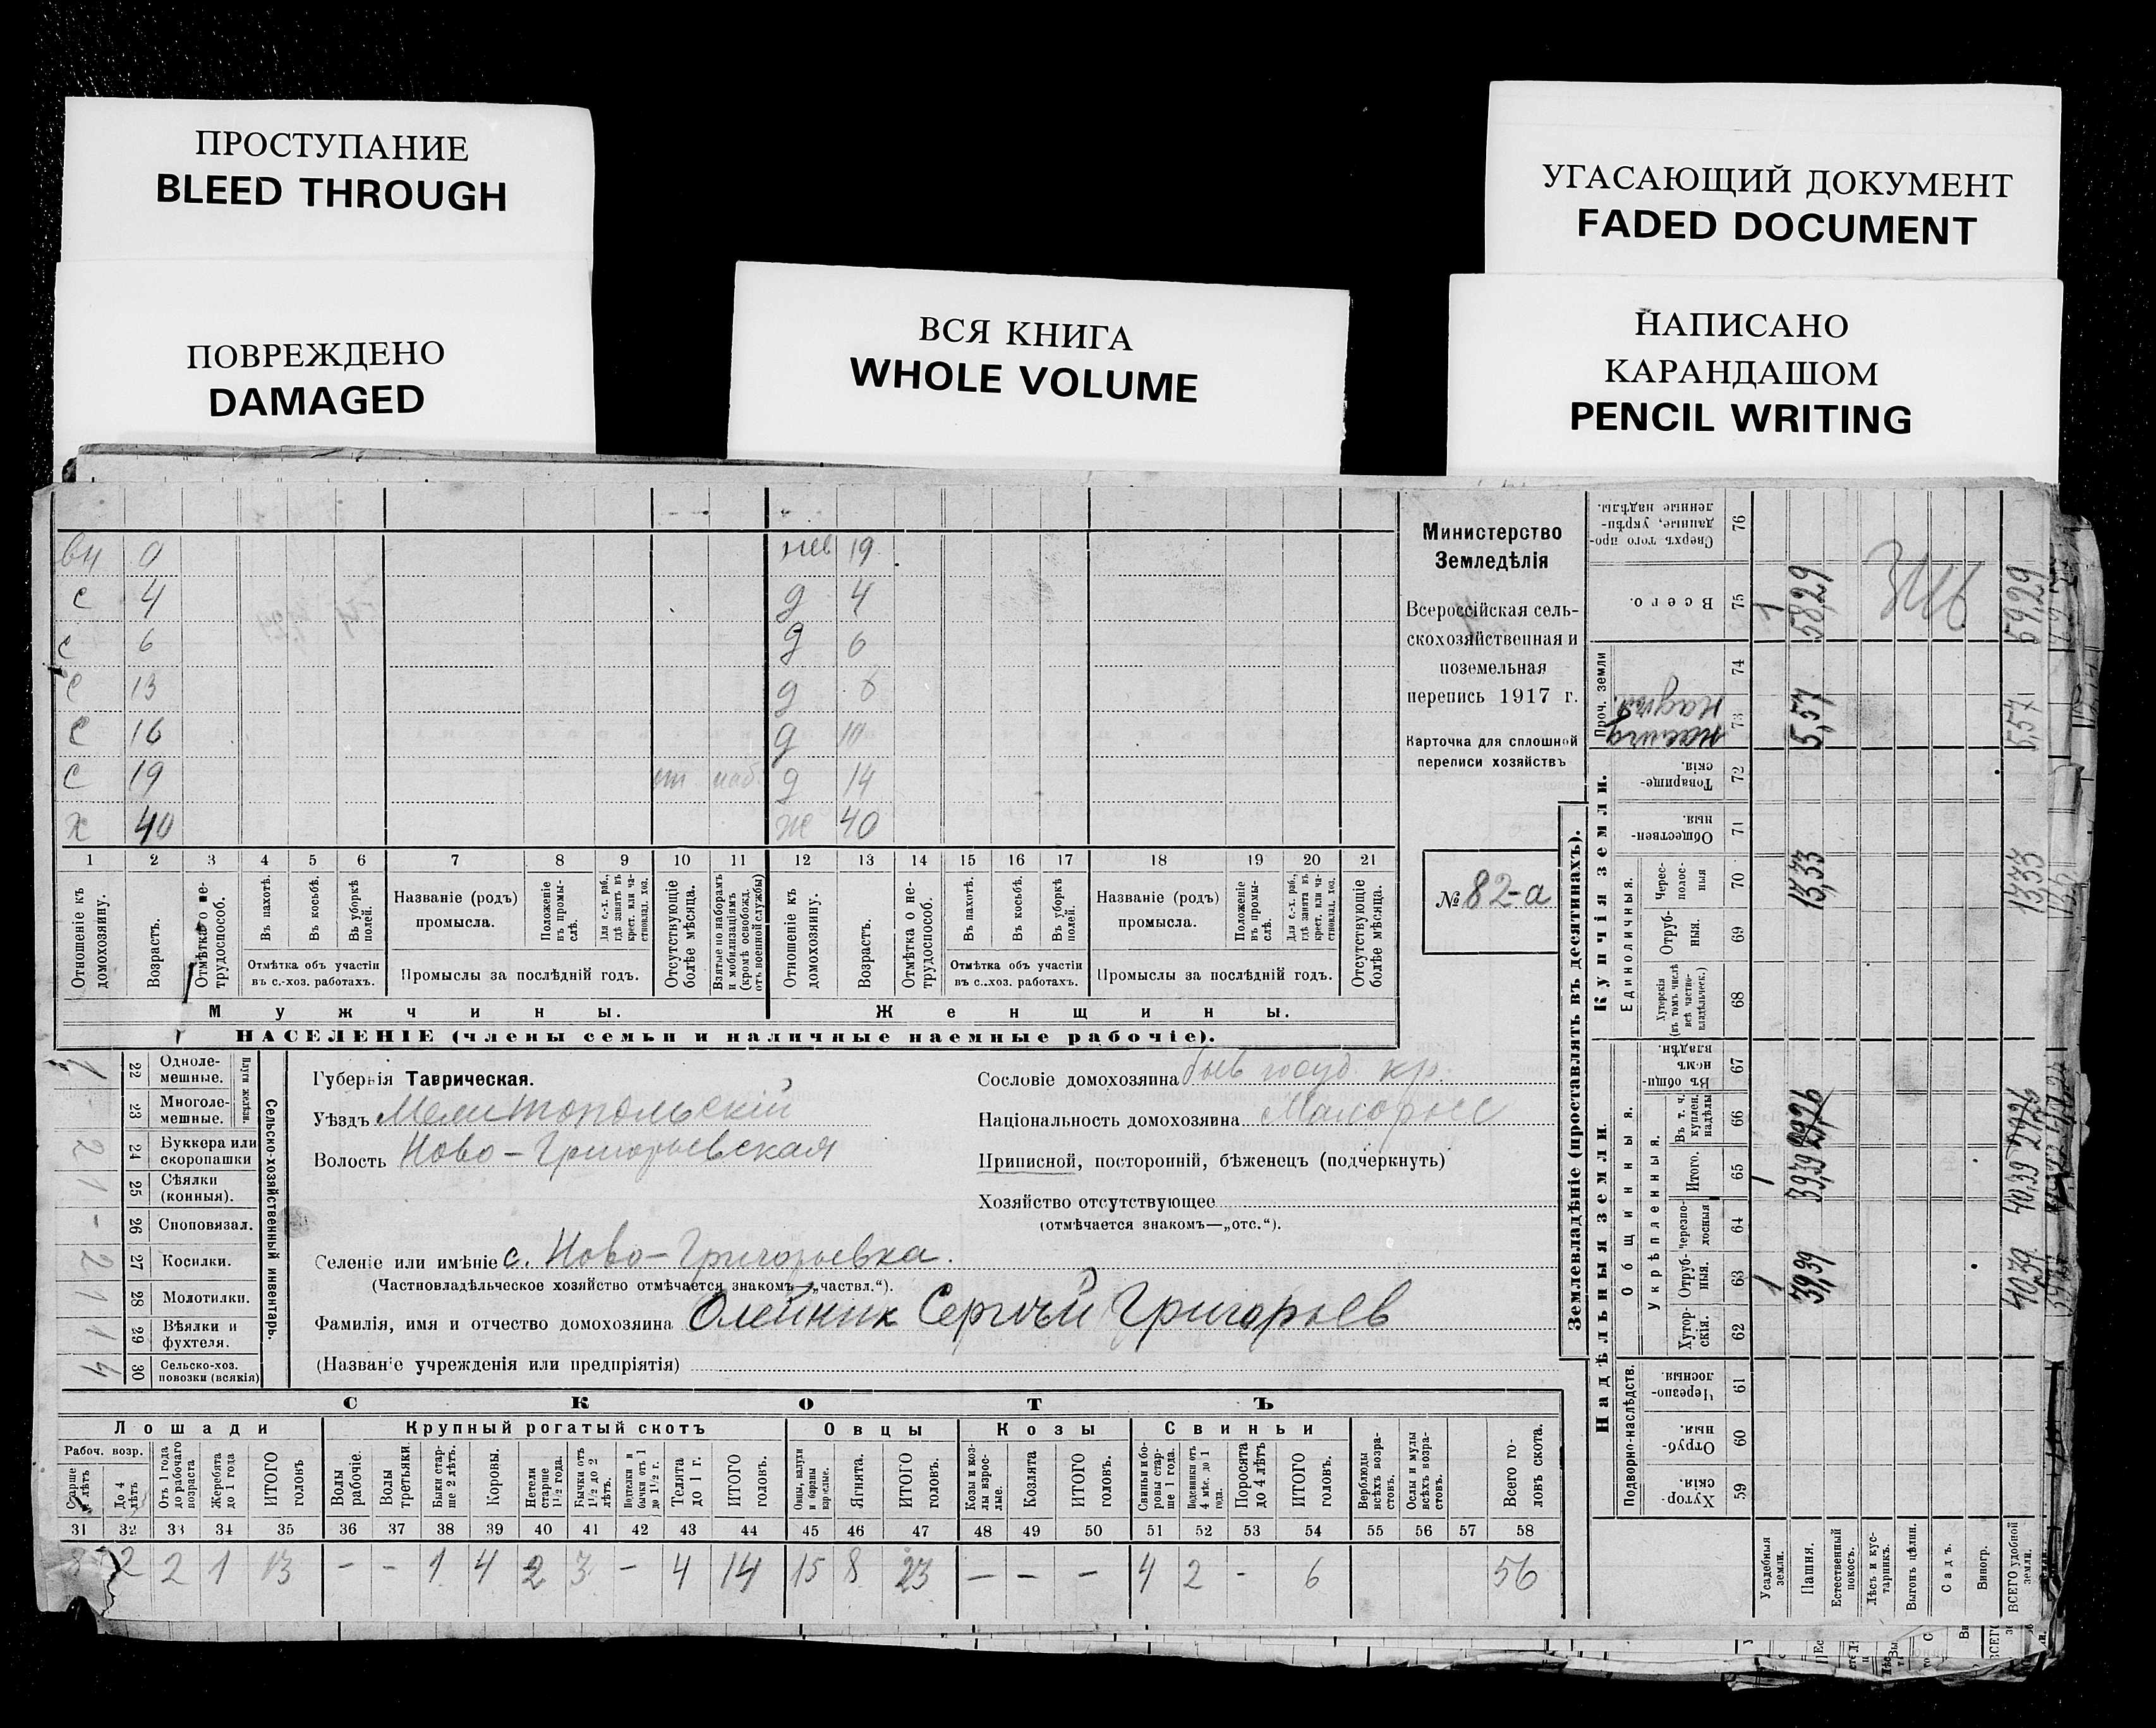 ПРОСТУПАНИЕ
BLEED THROUGH
ПОВРЕЖДЕНО
DAMAGED
ВСЯ КНИГА
WHOLE VOLUME
УГАСАЮЩИЙ ДОКУМЕНТ
FADED DOCUMENT
НАПИСАНО
КАРАНДАШОМ
PENCIL WRITING
вн 0 19
с 4 д 4
с 6 д 6
с 13 д
с 16 д
с 19 д 14
х 40 ж 40
1 2 3 4 5 6 7 8 9 10 11 12 13 14 15 16 17 18 19 20 21
Отношеніе къ домохозяину.
Возрастъ.
Отмѣтка о нетрудоспособ.
Въ пахотѣ.
Въ косьбѣ.
Въ уборкѣ полей.
Отмѣтка объ участіи
въ с.-хоз. работахъ.
Названіе (родъ)
промысла.
Положеніе въ промыслѣ.
Для с.-х. раб., гдѣ занятъ въ крест. или частновлад. хоз.
Промыслы за послѣдній годъ.
Отсутствующіе болѣе мѣсяца.
Взятые по наборамъ и мобилизаціямъ (кромѣ освобожд. отъ военной службы)
Отношеніе къ домохозяину.
Возрастъ.
Отмѣтка о нетрудоспособ.
Въ пахотѣ.
Въ косьбѣ.
Въ уборкѣ полей.
Отмѣтка объ участіи
въ с.-хоз. работахъ.
Названіе (родъ)
промысла.
Положеніе въ промыслѣ.
Для с.-х. раб., гдѣ занята въ крест. или частновлад. хоз.
Промыслы за послѣдній годъ.
Отсутствующіе болѣе мѣсяца.
Мужчины. Женщины.
НАСЕЛЕНІЕ (члены семьи и наличные наемные рабочіе).
Министерство
Земледѣлія
Всероссійская сель-
скохозяйственная и
поземельная
перепись 1917 г.
Карточка для сплошной
переписи хозяйствъ
№ 82-а
Сельско-хозяйственный инвентарь.
Плуги желѣзн.
1 22 Одноле-
мешные.
23 Многоле-
мешные.
2 24 Буккера или
скоропашки
1 25 Сѣялки
(конныя).
- 26 Сноповязал.
2 27 Косилки.
1 28 Молотилки.
1 29 Вѣялки и
фухтеля.
4 30 Сельско-хоз.
повозки (всякія)
Губернія Таврическая.
Уѣздъ Мелитопольскій
Волость Ново-Григорьевская
Селеніе или имѣніе с. Ново-Григорьевка.
(Частновладѣльческое хозяйство отмѣчается знакомъ—„частвл.“).
Фамилія, имя и отчество домохозяина Олейник Сергѣй Григорьев
(Названіе учрежденія или предпріятія)
Сословіе домохозяина быв госуд кр.
Національность домохозяина Малоросс
Приписной, посторонній, бѣженецъ (подчеркнуть)
Хозяйство отсутствующее
(отмѣчается знакомъ—„отс.“).
СКОТЪ
Лошади Крупный рогатый скотъ Овцы Козы Свиньи
Рабоч. возр.
Старше лѣтъ
До 4 лѣтъ
Отъ 1 года до рабочаго возраста
Жеребята до 1 года
ИТОГО головъ
Волы рабочіе.
Волы третьяки.
Быки старше 2 лѣтъ.
Коровы.
Нетели старше 1½ года.
Бычки отъ 1½ до 2 лѣтъ.
Нотелки и бычки отъ 1 до 1½ г.
Телята до 1 г.
ИТОГО головъ.
Овцы, валухи и бараны взрослые.
Ягнята.
ИТОГО головъ.
Козы и козлы взрослые.
Козлята
ИТОГО головъ.
Свиньи и боровы старше 1 года.
Подсвинки отъ 4 мѣс. до 1 года.
Поросята до 4 лѣтъ
ИТОГО головъ.
Верблюды всѣхъ возрастовъ.
Ослы и мулы всѣхъ возрастовъ.
Всего головъ скота.
31 32 33 34 35 36 37 38 39 40 41 42 43 44 45 46 47 48 49 50 51 52 53 54 55 56 57 58
8 2 2 1 13 - - 1 4 2 3 - 4 14 15 8 23 - - - 4 2 - 6 56
Землевладѣніе (проставлять въ десятинахъ).
Надѣльныя земли. Купчія земли. Проч. земли
Подворно-наслѣдств.
Общинныя.
Укрѣпленныя.
Единоличныя.
Хуторскія. 59
Отрубныя. 60
Черезполосныя. 61
Хуторскія. 62
Отрубныя. 63
Черезполосныя 64
Итого. 65
Въ т. ч. куплен. надѣлы 66
Въ общинномъ владѣн. 67
Хуторскія (въ томъ числѣ всѣ частновладѣльческ.) 68
Отрубныя. 69
Чересполосныя 70
Общественныя. 71
Товарищескія. 72
73
74
Всего. 75
Сверхъ того проданные, укрѣпленные надѣлы. 76
Усадебныя земли. 1 1 1
Пашня. 39,39 39,39 13,33 5,57 58,29
Естественный покосъ.
Лѣсъ и кустарникъ.
Выгонъ цѣлин.
Садъ.
Виногр.
ВСЕГО удобной земли. 40,39 40,39 13,33 5,57 59,29